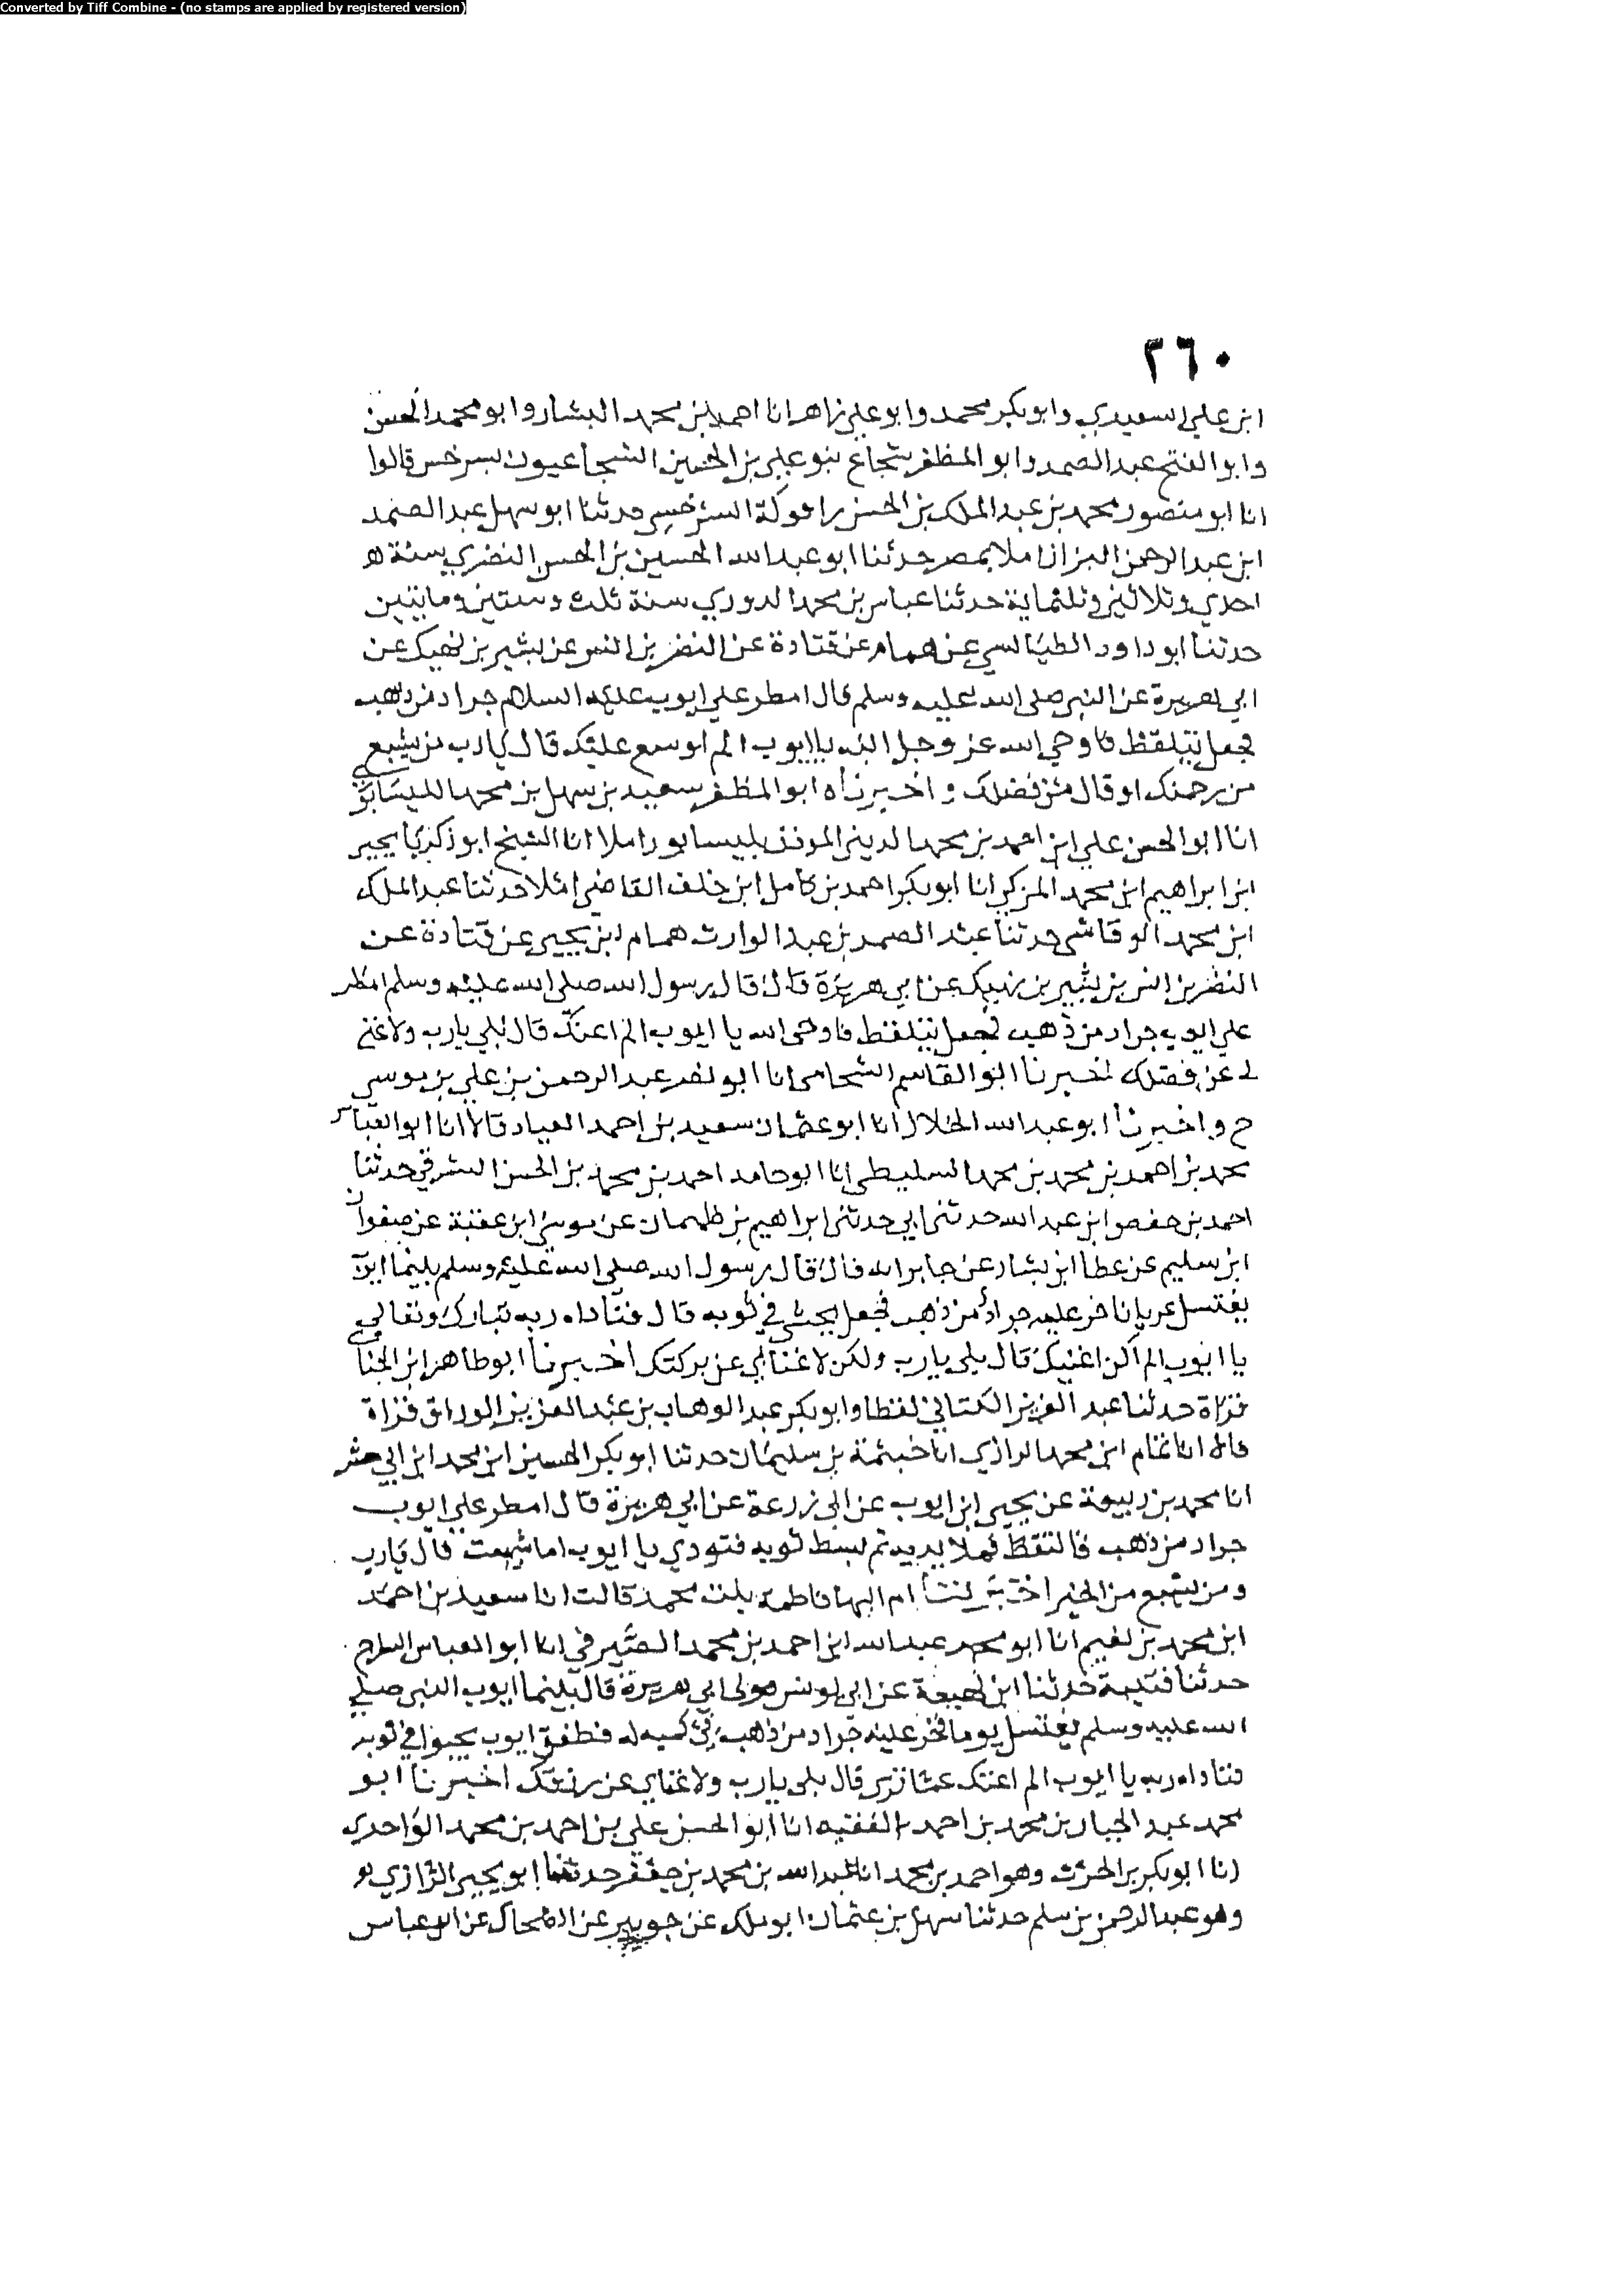 Converted by Tiff Combine - (no stamps are applied by registered version)
٢٦٠
ابن علي السعيدي وابو بكر محمد وابو علي زاهر انا احمد بن محمد البشار وابو محمد الحسن
وابو الفتح عبد الصمد وابو المظفر شجاع بنو علي بن الحسين الشجاعيون بسرخس قالوا
انا ابو منصور محمد بن عبد الملك بن الحسن السرخسي حدثنا ابو سهل عبد الصمد
ابن عبد الرحمن البزاز املا بمصر حدثنا ابو عبد الله الحسين بن الحسن النضري سنة
احدي وثلاثين وثلثماية حدثنا عباس بن محمد الدوري سنة ثلث وستين ومايتين
حدثنا ابو داود الطيالسي عن همام عن قتادة عن النضر بن انس عن بشير بن نهيك عن
ابي هريرة عن النبي صلى الله عليه وسلم قال امطر علي ايوب عليه السلام جراد من ذهب
فجعل يتلقظ فاوحي الله عز وجل اليه ياايوب الم اوسع عليك قال يارب من يشبع
من رحمتك او قال من فضلك واخبرناه ابو المظفر سعيد بن سهل بن محمد
انا ابو الحسن علي ابن احمد بن محمد المديني الموذن بنيسابور املا انا الشيخ ابو زكريا يحيي
ابن ابراهيم ابن محمد المزكي انا ابو بكر احمد بن كامل ابن خلف القاضي املا حدثنا عبد الملك
ابن محمد الوقاشي حدثنا عبد الصمد بن عبد الوارث همام ابن يحيي عن قتادة عن
النضر بن انس بن بشير بن نهيك عن ابي هريرة قال قال رسول الله صلى الله عليه وسلم امطر
علي ايوب جراد من ذهب فجعل يتلقط فاوحى الله يا ايوب الم اغنك قال بلي يارب ولا غني
لي عن فضلك اخبرنا ابو القاسم الشحامي انا ابو نصر عبد الرحمن بن علي بن موسي
ح واخبرنا ابو عبد الله الخلال انا ابو عثمان سعيد بن احمد العيار قالا انا ابو العباس
محمد بن احمد بن محمد بن محمد السليطي انا ابو حامد احمد بن محمد بن الحسن الشرقي حدثنا
احمد بن حفص ابن عبد الله حدثني ابي حدثني ابراهيم بن طهمان عن موسي ابن عقبة عن صفوان
ابن سليم عن عطا ابن يشار عن جابر انه قال قال رسول الله صلى الله عليه وسلم بينما ايوب
يغتسل عريانا خر عليه جراد من ذهب فجعل يحثي في ثوبه قال فناداه ربه تبارك وتعالي
يا ايوب الم اكن اغنيك قال بلى يارب ولكن لا غنا لي عن بركتك اخبرنا ابو طاهر ابن الحنائي
قراة حدثنا عبد العزيز الكتاني لفظا وابو بكر عبد الوهاب بن عبد العزيز الوراق قراة
قالا انا تمام ابن محمد الرازي انا خيثمة بن سليمان حدثنا ابو بكر الحسين ابن محمد ابن ابي
انا محمد بن ربيعة عن يحيى ابن ايوب عن ابي زرعة عن ابي هريرة قال امطر علي ايوب
جراد من ذهب فالتقط فملا يديه ثم بسط ثوبه فنودي يا ايوب اما شبعت قال يارب
ومن يشبع من الخير اخبرتنا ام البها فاطمة بنت محمد قالت انا سعيد بن احمد
ابن محمد بن نعيم انا ابو محمد عبد الله ابن احمد بن محمد الصيرفي انا ابو العباس السراج
حدثنا قتيبة حدثنا ابن لهيعة عن ابي يونس مولى ابي هريرة قال بينما ايوب النبي صلي
الله عليه وسلم يغتسل يوما فخر عليه جراد من ذهب في كسيه له فطفق ايوب يحثوا في ثوبه
فناداه ربه يا ايوب الم اغنك عما ترى قال بلى يارب ولا غناي عن رزقك اخبرنا ابو
محمد عبد الجبار بن محمد بن احمد الفقيه انا ابو الحسن علي بن احمد بن محمد الواحدي
انا ابو بكر بن الحرث وهو احمد بن محمد انا عبد الله بن محمد بن جعفر حدثنا ابو يحيي الرازي
وهو عبد الرحمن بن سلم حدثنا سهل بن عثمان ابو ملك عن جويبر عن الضحاك عن ابن عباس